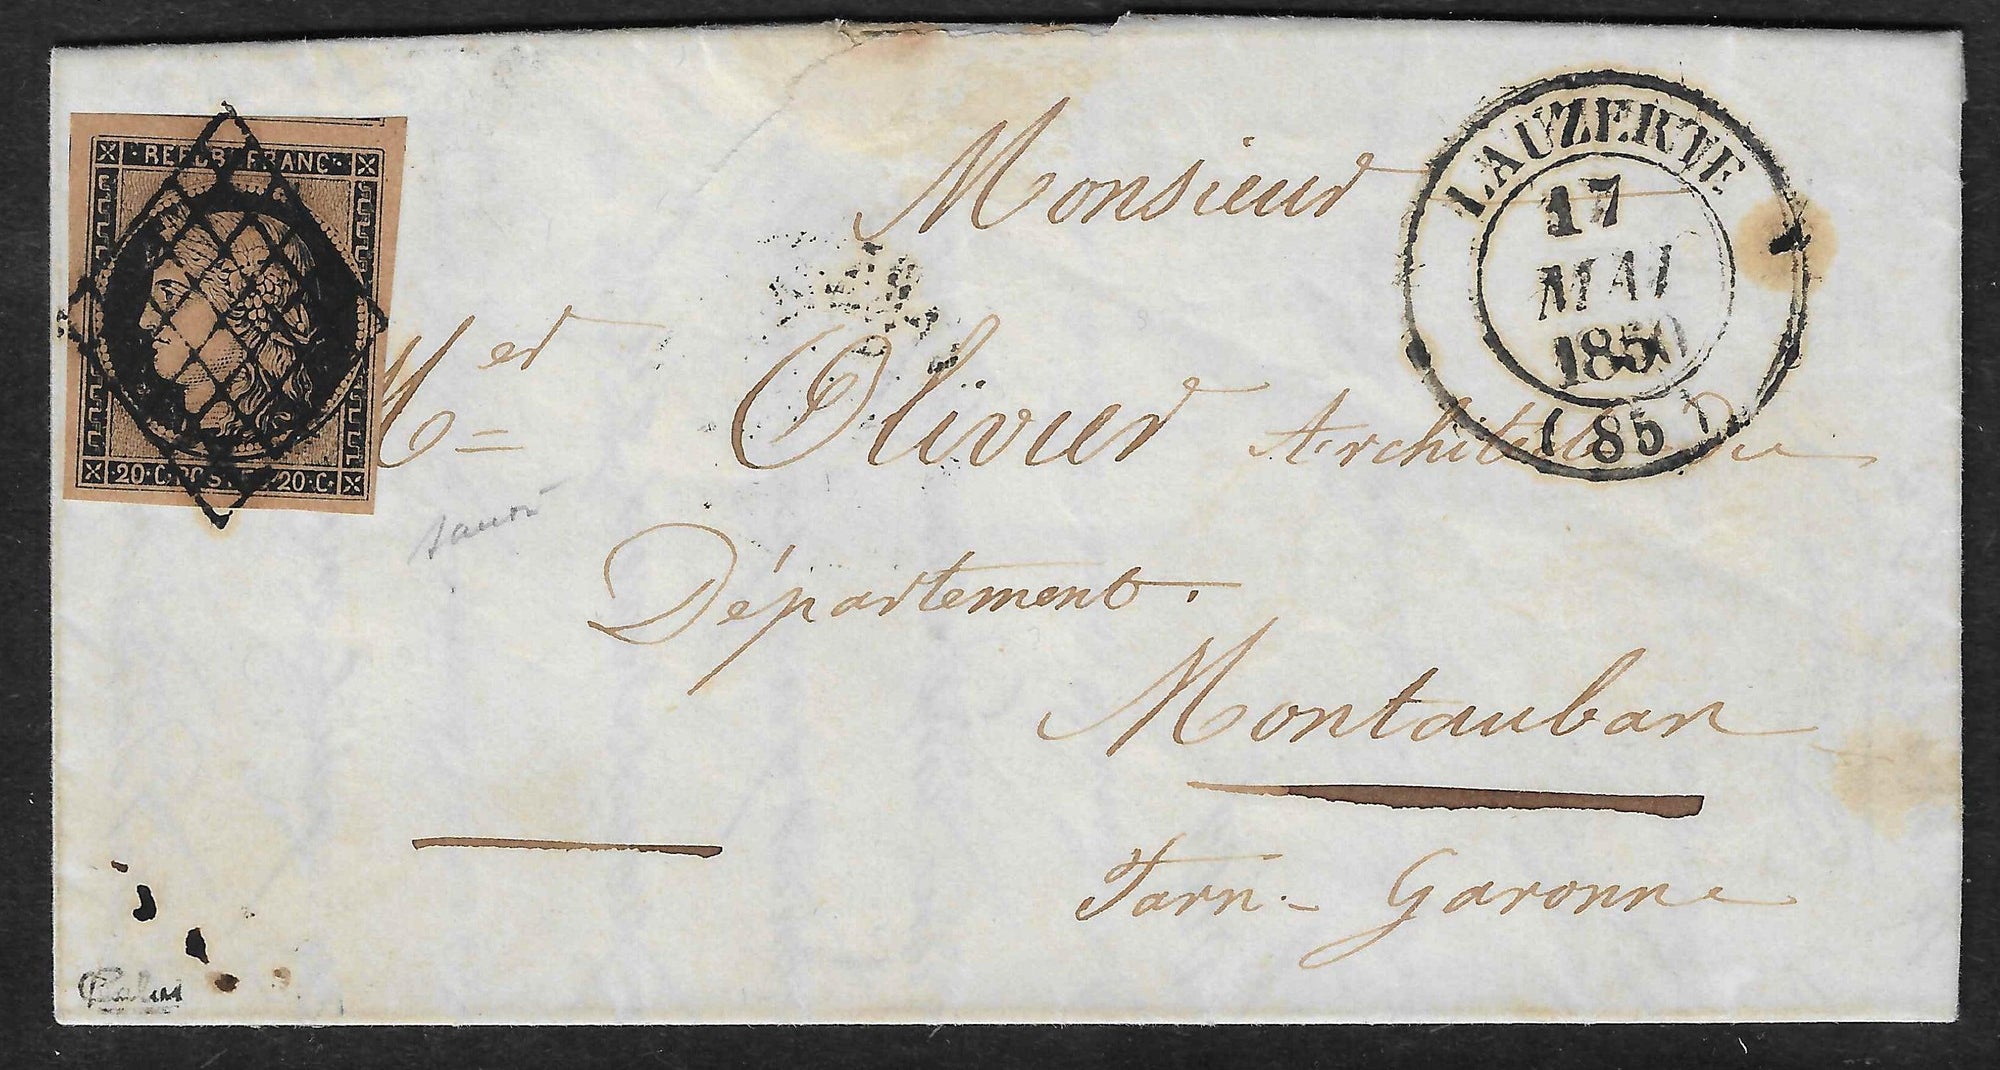 REPUB FRANC
20 · C · POSTE · 20 · C ·
LAUZERTE
17
MAI
1850
(85)
Monsieur
Mer Olivier Architecte Du
Département.
Montauban
Tarn - Garonne
Calves